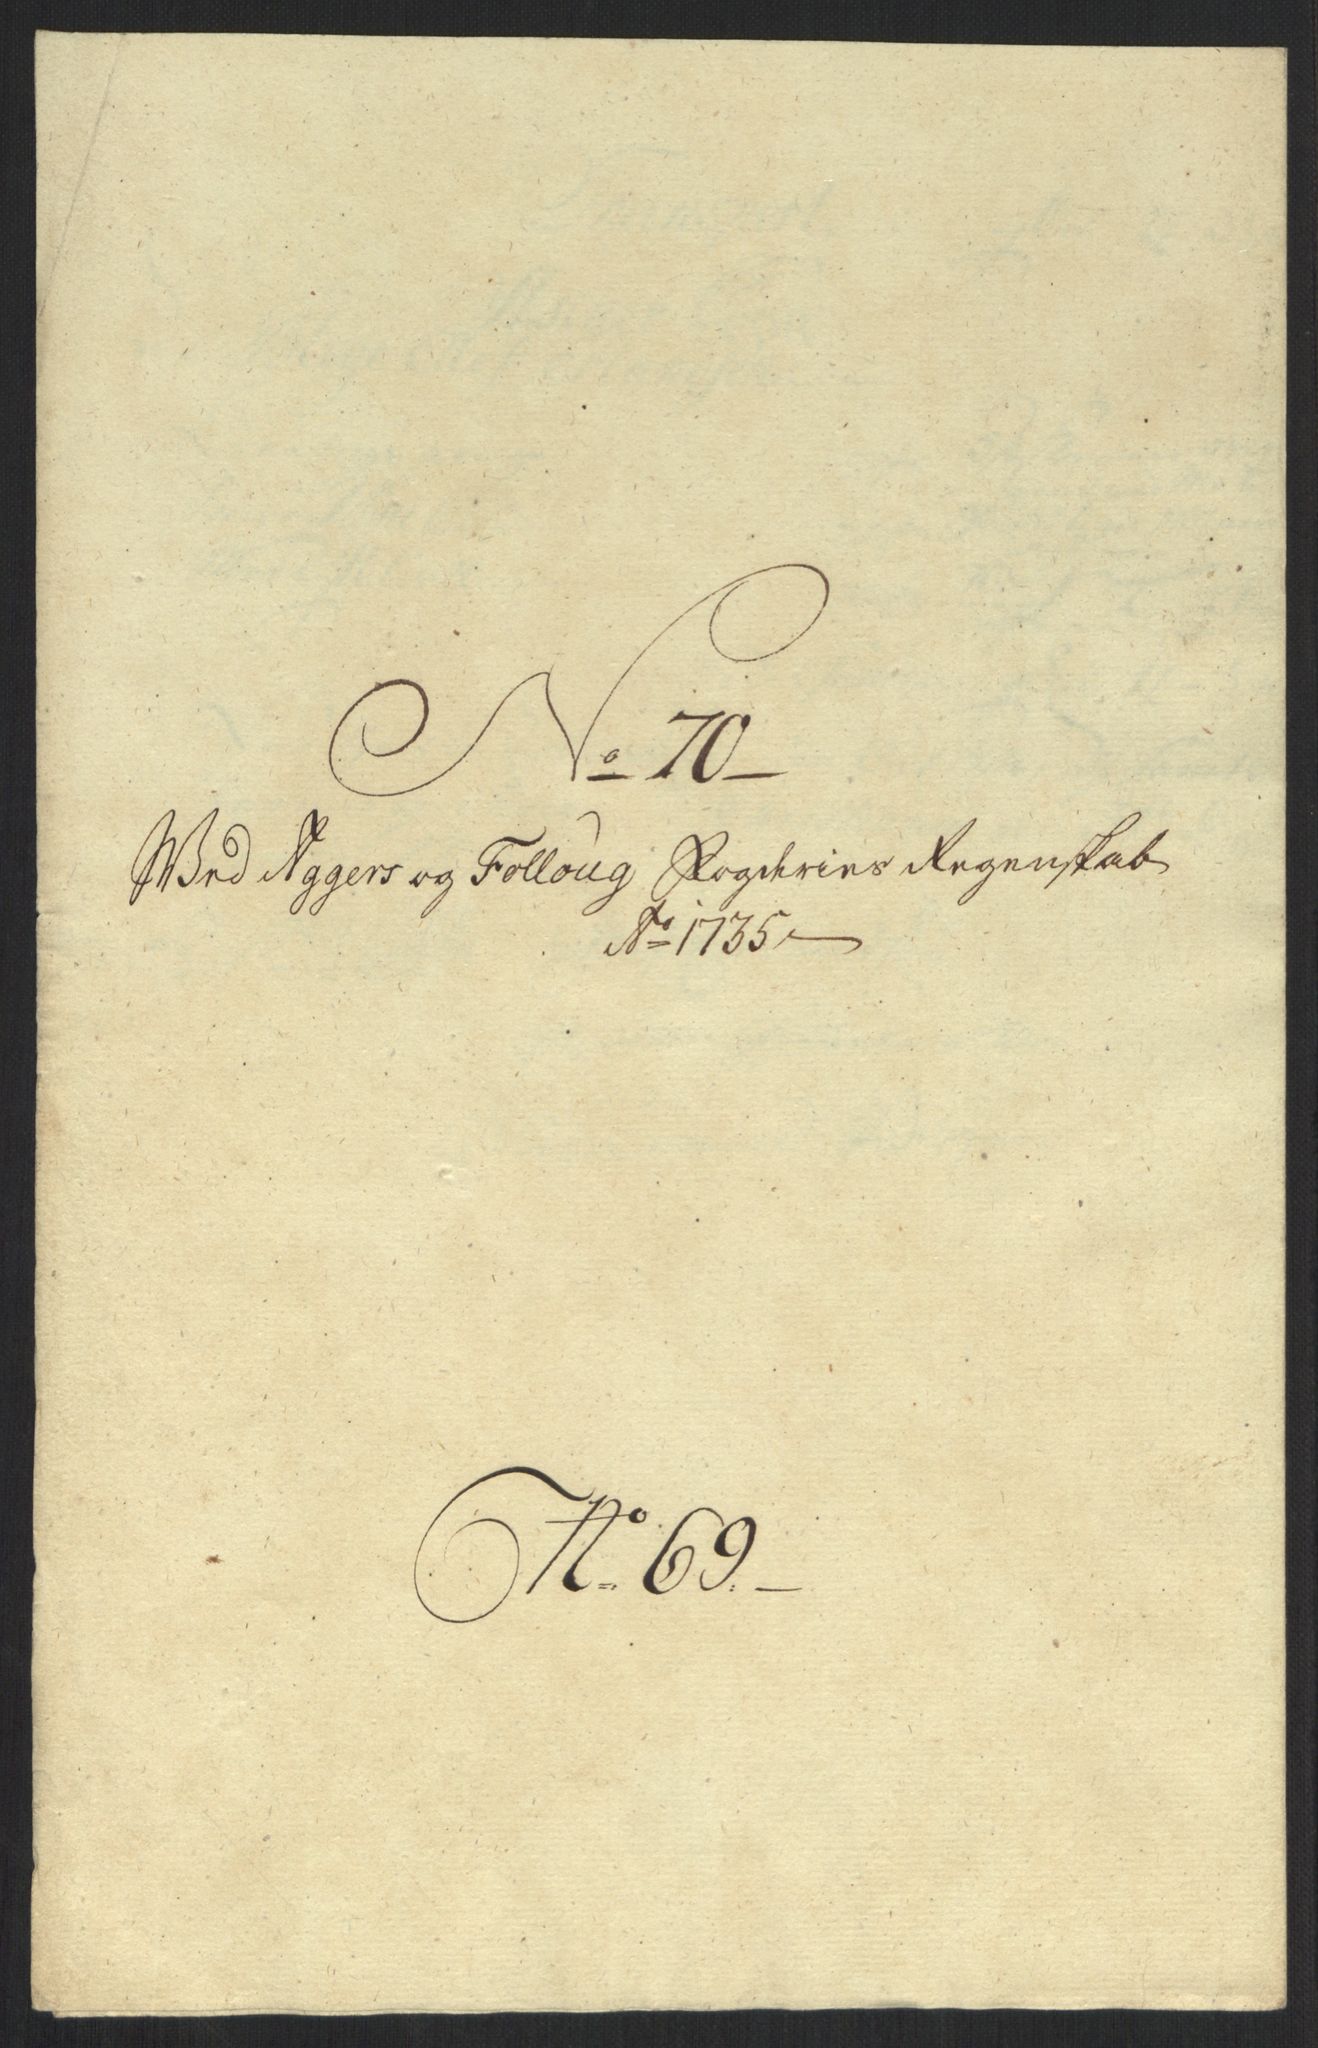 No 70
Wed Aggers og Folloug Fogderies Regenskab
Ao 1735
No. 69.